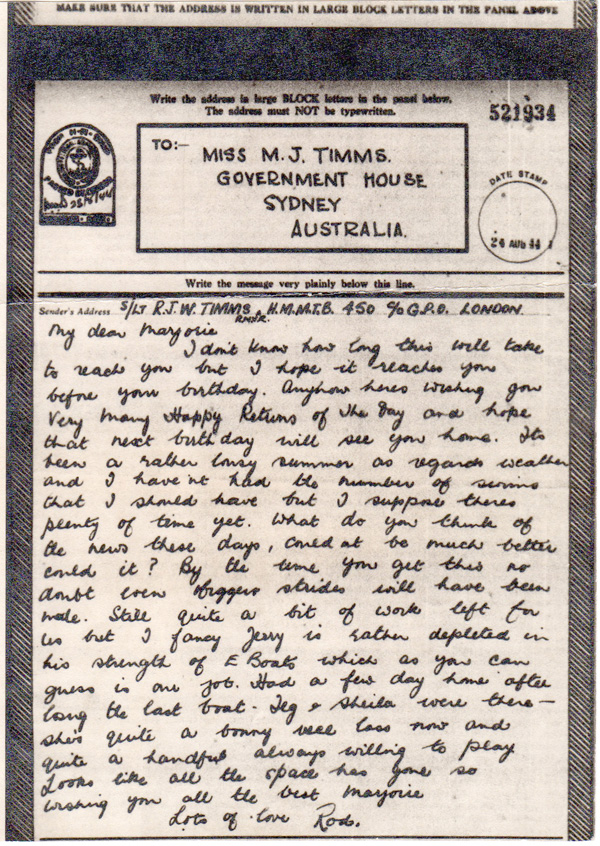 MAKE SURE THAT THE ADDRESS IS WRITTEN IN LARGE BLOCK LETTERS IN THE PANEL ABOVE
Write the address in large BLOCK letters in the panel below.
The address must NOT be typewritten.
521934
TO:-
MISS M. J. TIMMS.
GOVERNMENT HOUSE
SYDNEY
AUSTRALIA.
DATE STAMP
24 AUG 44
Write the message very plainly below this line.
Sender's Address S/LT R.J.W. TIMMS R.N.V.R. H.M.M.T.B. 450 c/o G.P.O. LONDON.
My dear Marjorie
I don't know how long this will take
to reach you but I hope it reaches you
before your birthday. Anyhow heres wishing you
Very Many Happy Returns of the Day and hope
that next birthday will see you home. Its
been a rather lousy summer as regards weather
and I have'nt had the number of swims
that I should have but I suppose theres
plenty of time yet. What do you think of
the news these days, could nt be much better
could it? By the time you get this no
doubt even bigger strides will have been
made. Still quite a bit of work left for
us but I fancy Jerry is rather depleted in
his strength of E Boats which as you can
guess is our job. Had a few day home after
losing the last boat. Teg & Sheila were there -
she's quite a bonny wee lass now and
quite a handful always willing to play.
Looks like all the space has gone so
wishing you all the best Marjorie
Lots of love Rod.